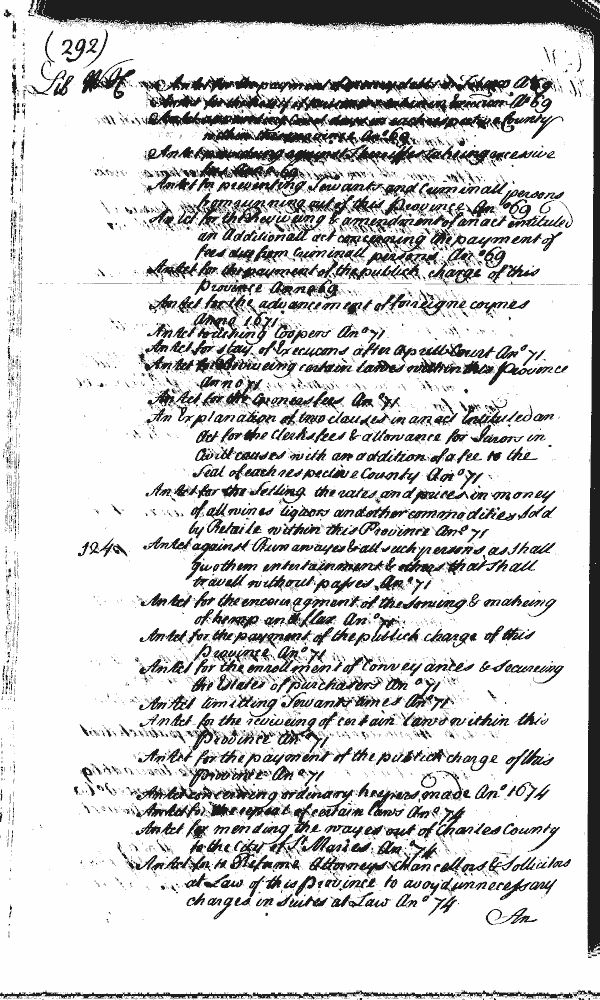 (292)
Lib W H An Act for the payment of money debts in Tobacco An° 69
An Act for the An° 69
An Act appointing Court days in each respective County
within this province An° 69
An Act providing against Sherriffs takeing excessive
fees An° 69
An Act for preventing Servants and Criminall persons
from running out of this Province An° 69
An Act for the Reviveing & amendment of an act entituled
an Additionall act concerning the payment of
fees due from Criminall persons An° 69
An Act for the payment of the publick charge of this
Province Anno 69
An Act for the advancement of forreigne coynes
Anno 1671
An Act touching Coopers An° 71
An Act for stay of Execucons after Aprill Court An° 71
An Act for Reviveing certain lawes within this Province
Anno 71
An Act for the Coroners fees An° 71
An Explanation of two clauses in an act Entituled an
Act for the Clerks fees & allowance for Jurors in
Civill causes with an addition of a fee to the
Seal of each respective County An° 71
An Act for the Setling the rates and prices in money
of all wines liquors and other commodities Sold
by Retaile within this Province An° 71
124 An Act against Runawayes & all such persons as Shall
give them entertainment & others that Shall
travell without passes An° 71
An Act for the encouragment of the sowing & makeing
of hemp and flax An° 71
An Act for the payment of the publick charge of this
Province An° 71
An Act for the enrollment of Conveyances & Secureing
the Estates of purchasers An° 71
An Act limitting Servants times An° 71
An Act for the reviveing of certain laws within this
Province An° 71
An Act for the payment of the publick charge of this
Province An° 71
An Act concerning ordinary keepers made An° 1674
An Act for the repeal of certain laws An° 74
An Act for mending the wayes out of Charles County
to the City of St Maries An° 74
An Act for to Reforme Attorneys Chancellors & Sollicitors
at Law of this Province to avoyd unnecessary
charges in Suites at Law An° 74
An